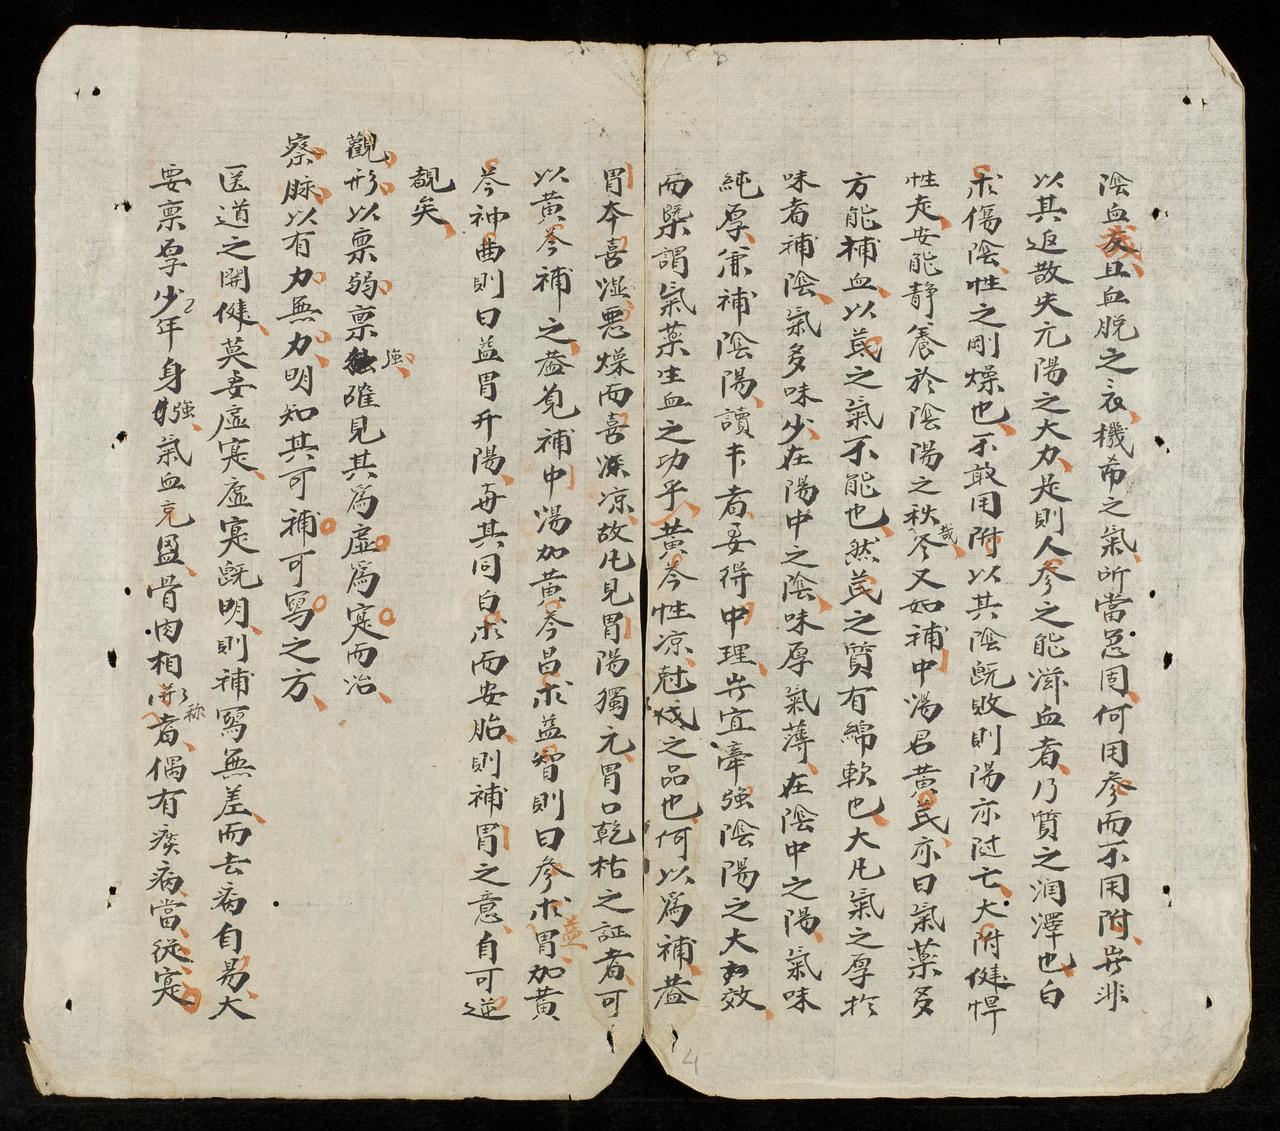 陰血友且血脱之衣機希之氣所當急固何用參而不用附豈非
以其返散失元陽之大力是則人參之能滋血者乃質之潤澤也白
朮傷陰性之剛燥也不敢用附以其陰既敗則陽亦随亡大附健悍
性走安能静養於陰陽之秋哉又如補中湯君黄茋亦曰氣藥多
方能補血以茋之氣不能也然茋之質有綿軟也大凡氣之厚於
味者補陰氣多味少在陽中之陰味厚氣薄在陰中之陽氣味
純厚兼補陰陽讀本者要得中理豈宜牽強陰陽之大效
而槩謂氣藥生血之功乎黄芩性凉尅伐之品也何以爲補葢
胃本喜湿悪燥而喜深凉故凡見胃陽獨亢胃口乾枯之証者可
以黄芩補之葢見補中湯加黄芩昌朮益智則曰參朮益胃加黄
芩神曲則曰益胃升陽毎其同白朮而安胎則補胃之意自可逆
覩矣
觀形以禀弱禀強確見其爲虛爲寔而治
察脉以有力無力明知其可補可寫之方
医道之開健莫要虛寔虛寔既明則補寫無差而去病自易大
要禀厚少年身強氣血充盈骨肉相称者偶有疾病當從寔